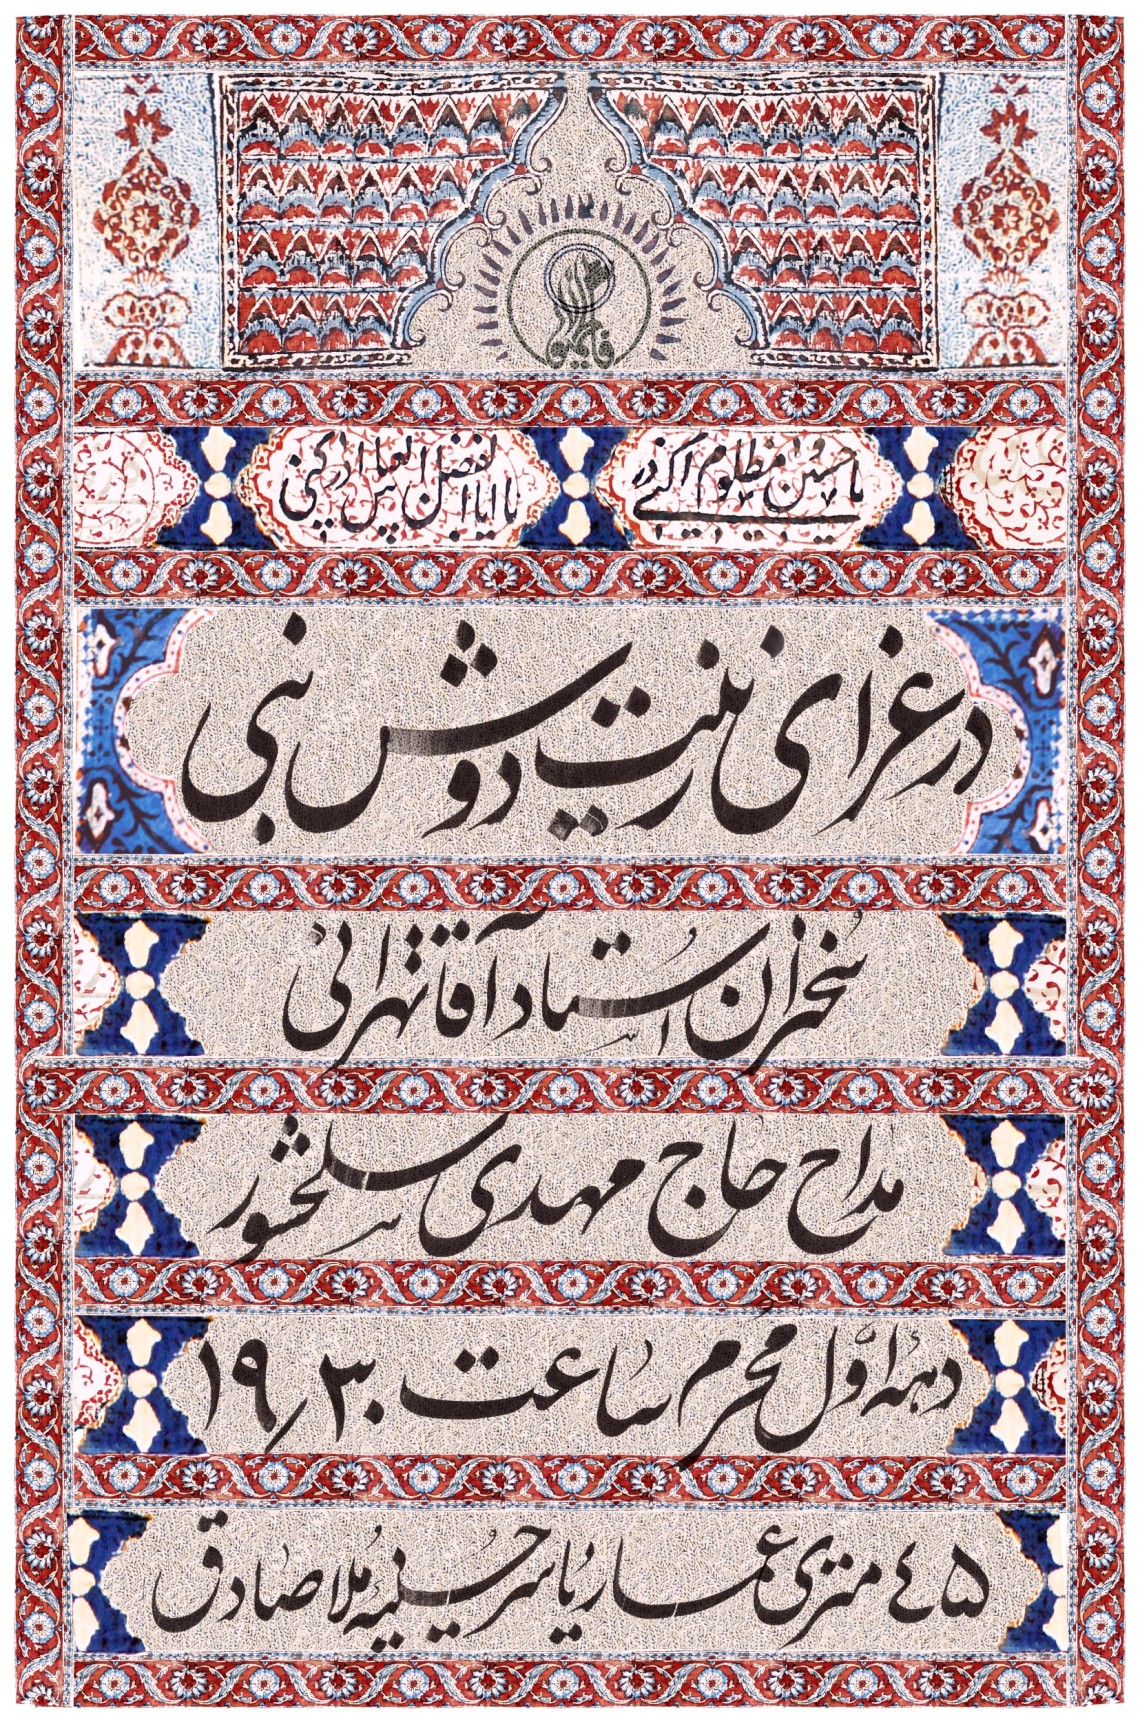 یا حسین مظلوم ادرکنی
یا اباالفضل العباس ادرکنی
در عزای زینت دوش نبی
سخنران استاد آقاتهرانی
مداح حاج مهدی سلحشور
دهه اول محرم ساعت ۱۹٫۳۰
۴۵ متری عماریاسر حسینیه ملاصادق